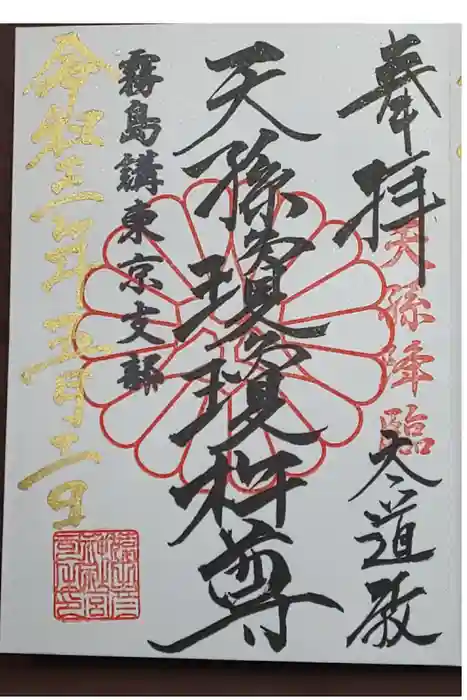 奉拝
天孫降臨
大道教
天孫瓊瓊杵尊
霧島講東京支部
令和三年五月二日